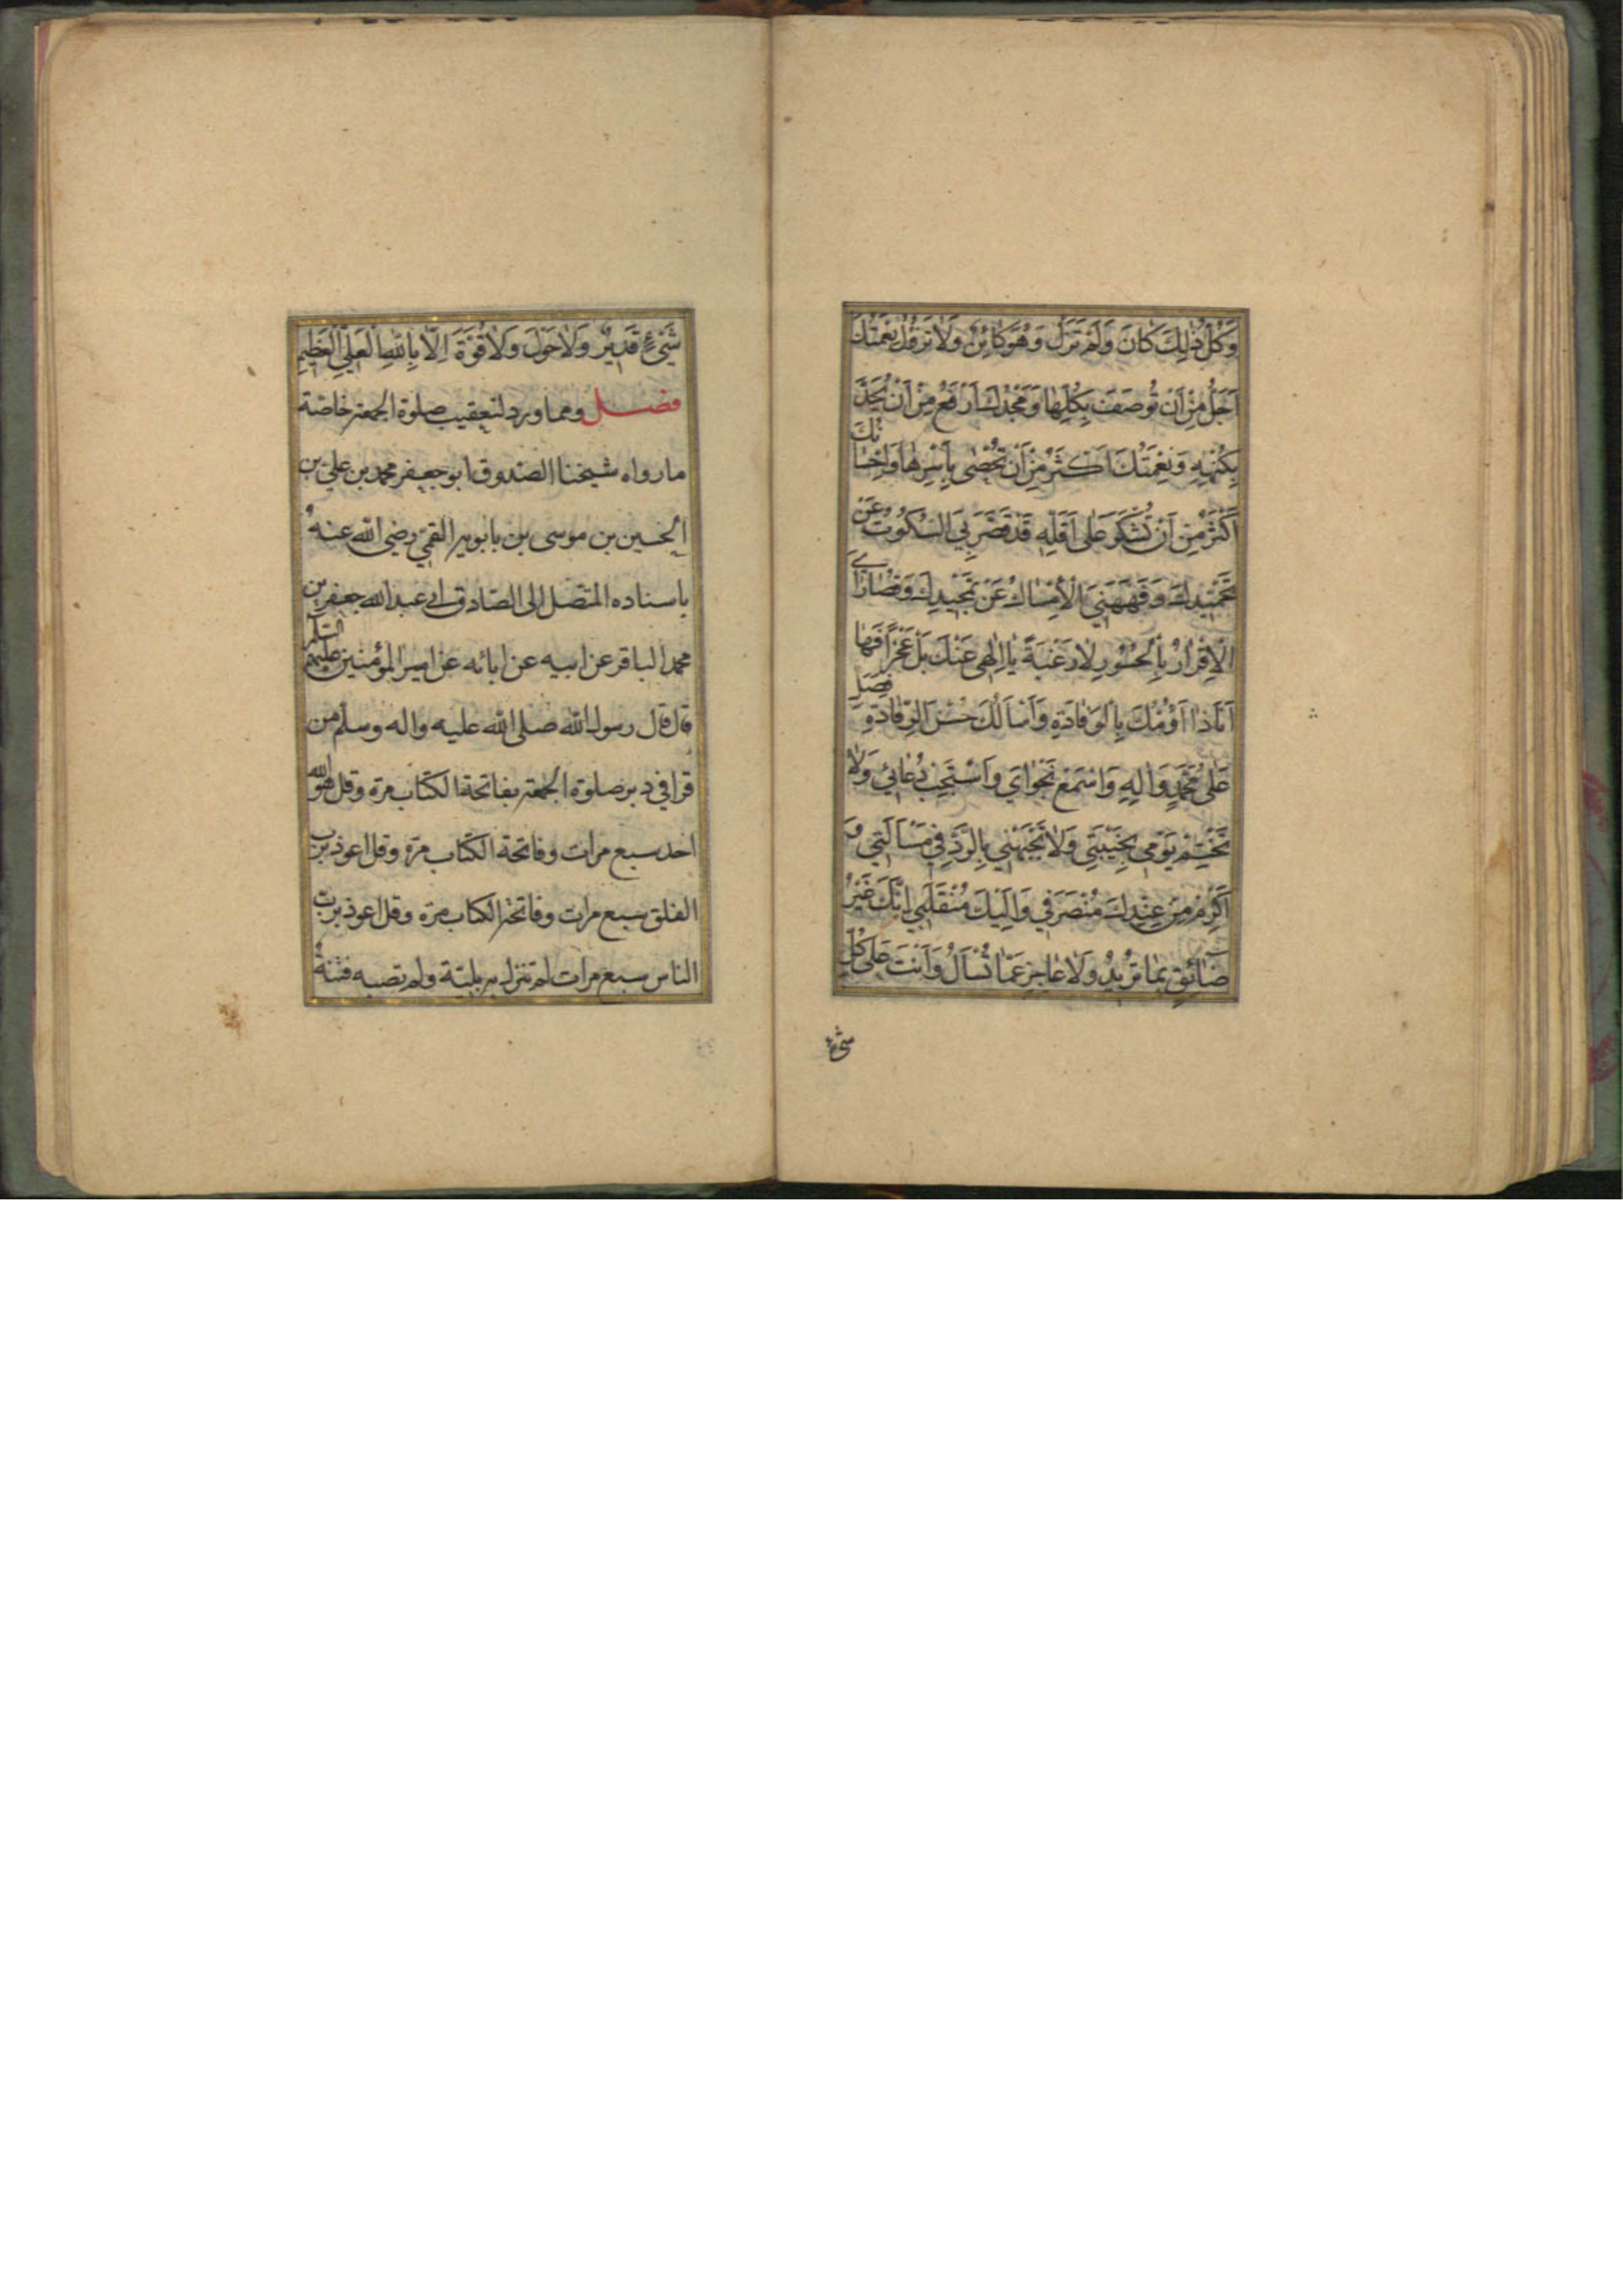 وَكُلُّ ذٰلِكَ كَانَ وَلَمْ تَزَلْ وَهُوَ كَائِنٌ وَلَا تَزُولُ نِعْمَتُكَ
اَجَلُّ مِنْ اَنْ تُوصَفَ بِكُلِّهَا وَمَجْدُكَ اَرْفَعُ مِنْ اَنْ يُحَدَّ
بِكُنْهِهِ وَنِعْمَتُكَ اَكْثَرُ مِنْ اَنْ تُحْصٰى بِاَسْرِهَا وَاِحْسَانُكَ
اَكْثَرُ مِنْ اَنْ تُشْكَرَ عَلٰى اَقَلِّهِ قَدْ قَصَّرَ بِيَ السُّكُوتُ عَنْ
تَحْمِيْدِكَ وَفَهَّهَنِيَ الْاِمْسَاكُ عَنْ تَمْجِيدِكَ وَقُصَارَايَ
الْاِقْرَارُ بِالْحُسُورِ لَا رَغْبَةً يَا اِلٰهِي عَنْكَ بَلْ عَجْزًا فَهَا
اَنَا ذَا اَؤُمُّكَ بِالْوِفَادَةِ وَاَسْاَلُكَ حُسْنَ الرِّفَادَةِ فَصَلِّ
عَلٰى مُحَمَّدٍ وَاٰلِهِ وَاسْمَعْ نَجْوَايَ وَاسْتَجِبْ دُعَائِي وَلَا
تَخْتِمْ يَوْمِي بِخَيْبَتِي وَلَا تَجْبَهْنِي بِالرَّدِّ فِي مَسْاَلَتِي وَ
اَكْرِمْ مِنْ عِنْدِكَ مُنْصَرَفِي وَاِلَيْكَ مُنْقَلَبِي اِنَّكَ غَيْرُ
ضَائِقٍ بِمَا تُرِيْدُ وَلَا عَاجِزٍ عَمَّا تُسْاَلُ وَاَنْتَ عَلٰى كُلِّ
شيء
شَيْءٍ قَدِيرٌ وَلَا حَوْلَ وَلَا قُوَّةَ اِلَّا بِاللّٰهِ الْعَلِيِّ الْعَظِيمِ
فصل ومما ورد لتعقيب صلوة الجمعة خاصّة
ما رواه شيخنا الصّدوق ابو جعفر محمد بن علي بن
الحسين بن موسى بن بابويه القمّي رضي الله عنه
باسناده المتصل الى الصّادق ابي عبد الله جعفر بن
محمد الباقر عن ابيه عن ابائه عن امير المؤمنين عليهم السّلم
قال قال رسول الله صلى الله عليه واله وسلم من
قرا في دبر صلوة الجمعة بفاتحة الكتاب مرة وقل هو الله
احد سبع مرات وفاتحة الكتاب مرّة وقل اعوذ برب
الفلق سبع مرات وفاتحة الكتاب مرّة وقل اعوذ بربّ
الناس سبع مرات لم تنزل به بليّة ولم تصبه فتنةٌ